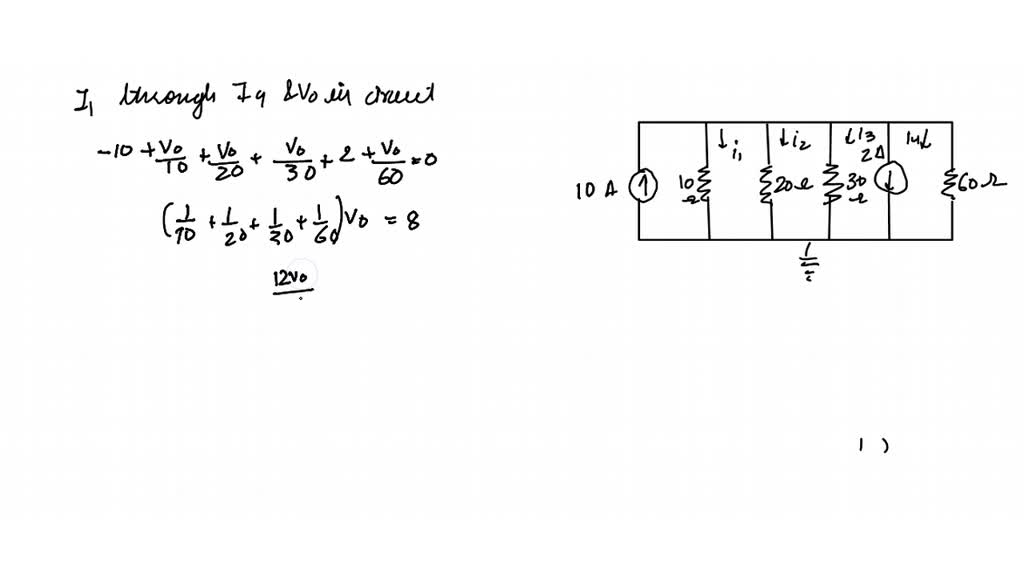 I1 through I4 &V0 in circuit
-10 + V0/10 + V0/20 + V0/30 + 2 + V0/60 = 0
(1/10 + 1/20 + 1/30 + 1/60) V0 = 8
12V0
10 A
10 Ω
i1
i2
20Ω
i3
30 Ω
2A
i4
60Ω
1 )